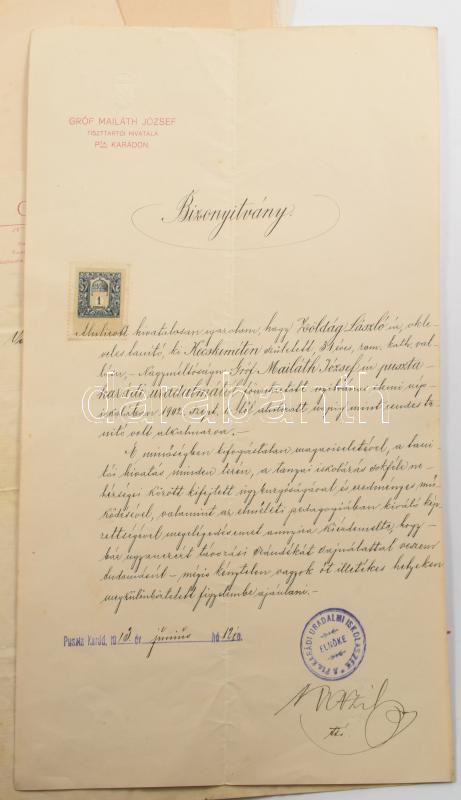 GRÓF MAILÁTH JÓZSEF
TISZTTARTÓI HIVATALA
PTA KARÁDON
Bizonyitvány.
1
Alulirott hivatalosan igazolom, hogy Zoldág László úr, okle-
veles tanító, ki Kecskeméten született, éves, rom. kath. val-
lású. – Nagyméltóságu Gróf Mailáth József úr puszta-
karádi uradalmából nyilvános elemi nép-
iskolában 1902. szept. 1. től alulirott napig mint rendes ta-
nító volt alkalmazva. –
E minőségben kifogástalan magaviseletével, a taní-
tói hivatás minden terén, a tanyai iskolázás sokféle ne-
hézségei között kifejtett ügybuzgóságával és eredményes mű-
ködésével, valamint az elméleti pedagogiában kiváló kép-
zettségével megelégedésemet annyira kiérdemelte, hogy
bár ugyancsak távozási szándékát sajnálattal veszem
tudomásul – mégis kénytelen vagyok őt illetékes helyeken
megkülönböztetett figyelembe ajánlani. –
Puszta Karád, 1913. év junius hó 12 én.
A PTA KARÁDI URADALMI ISKOLASZÉK
ELNÖKE
darabanth